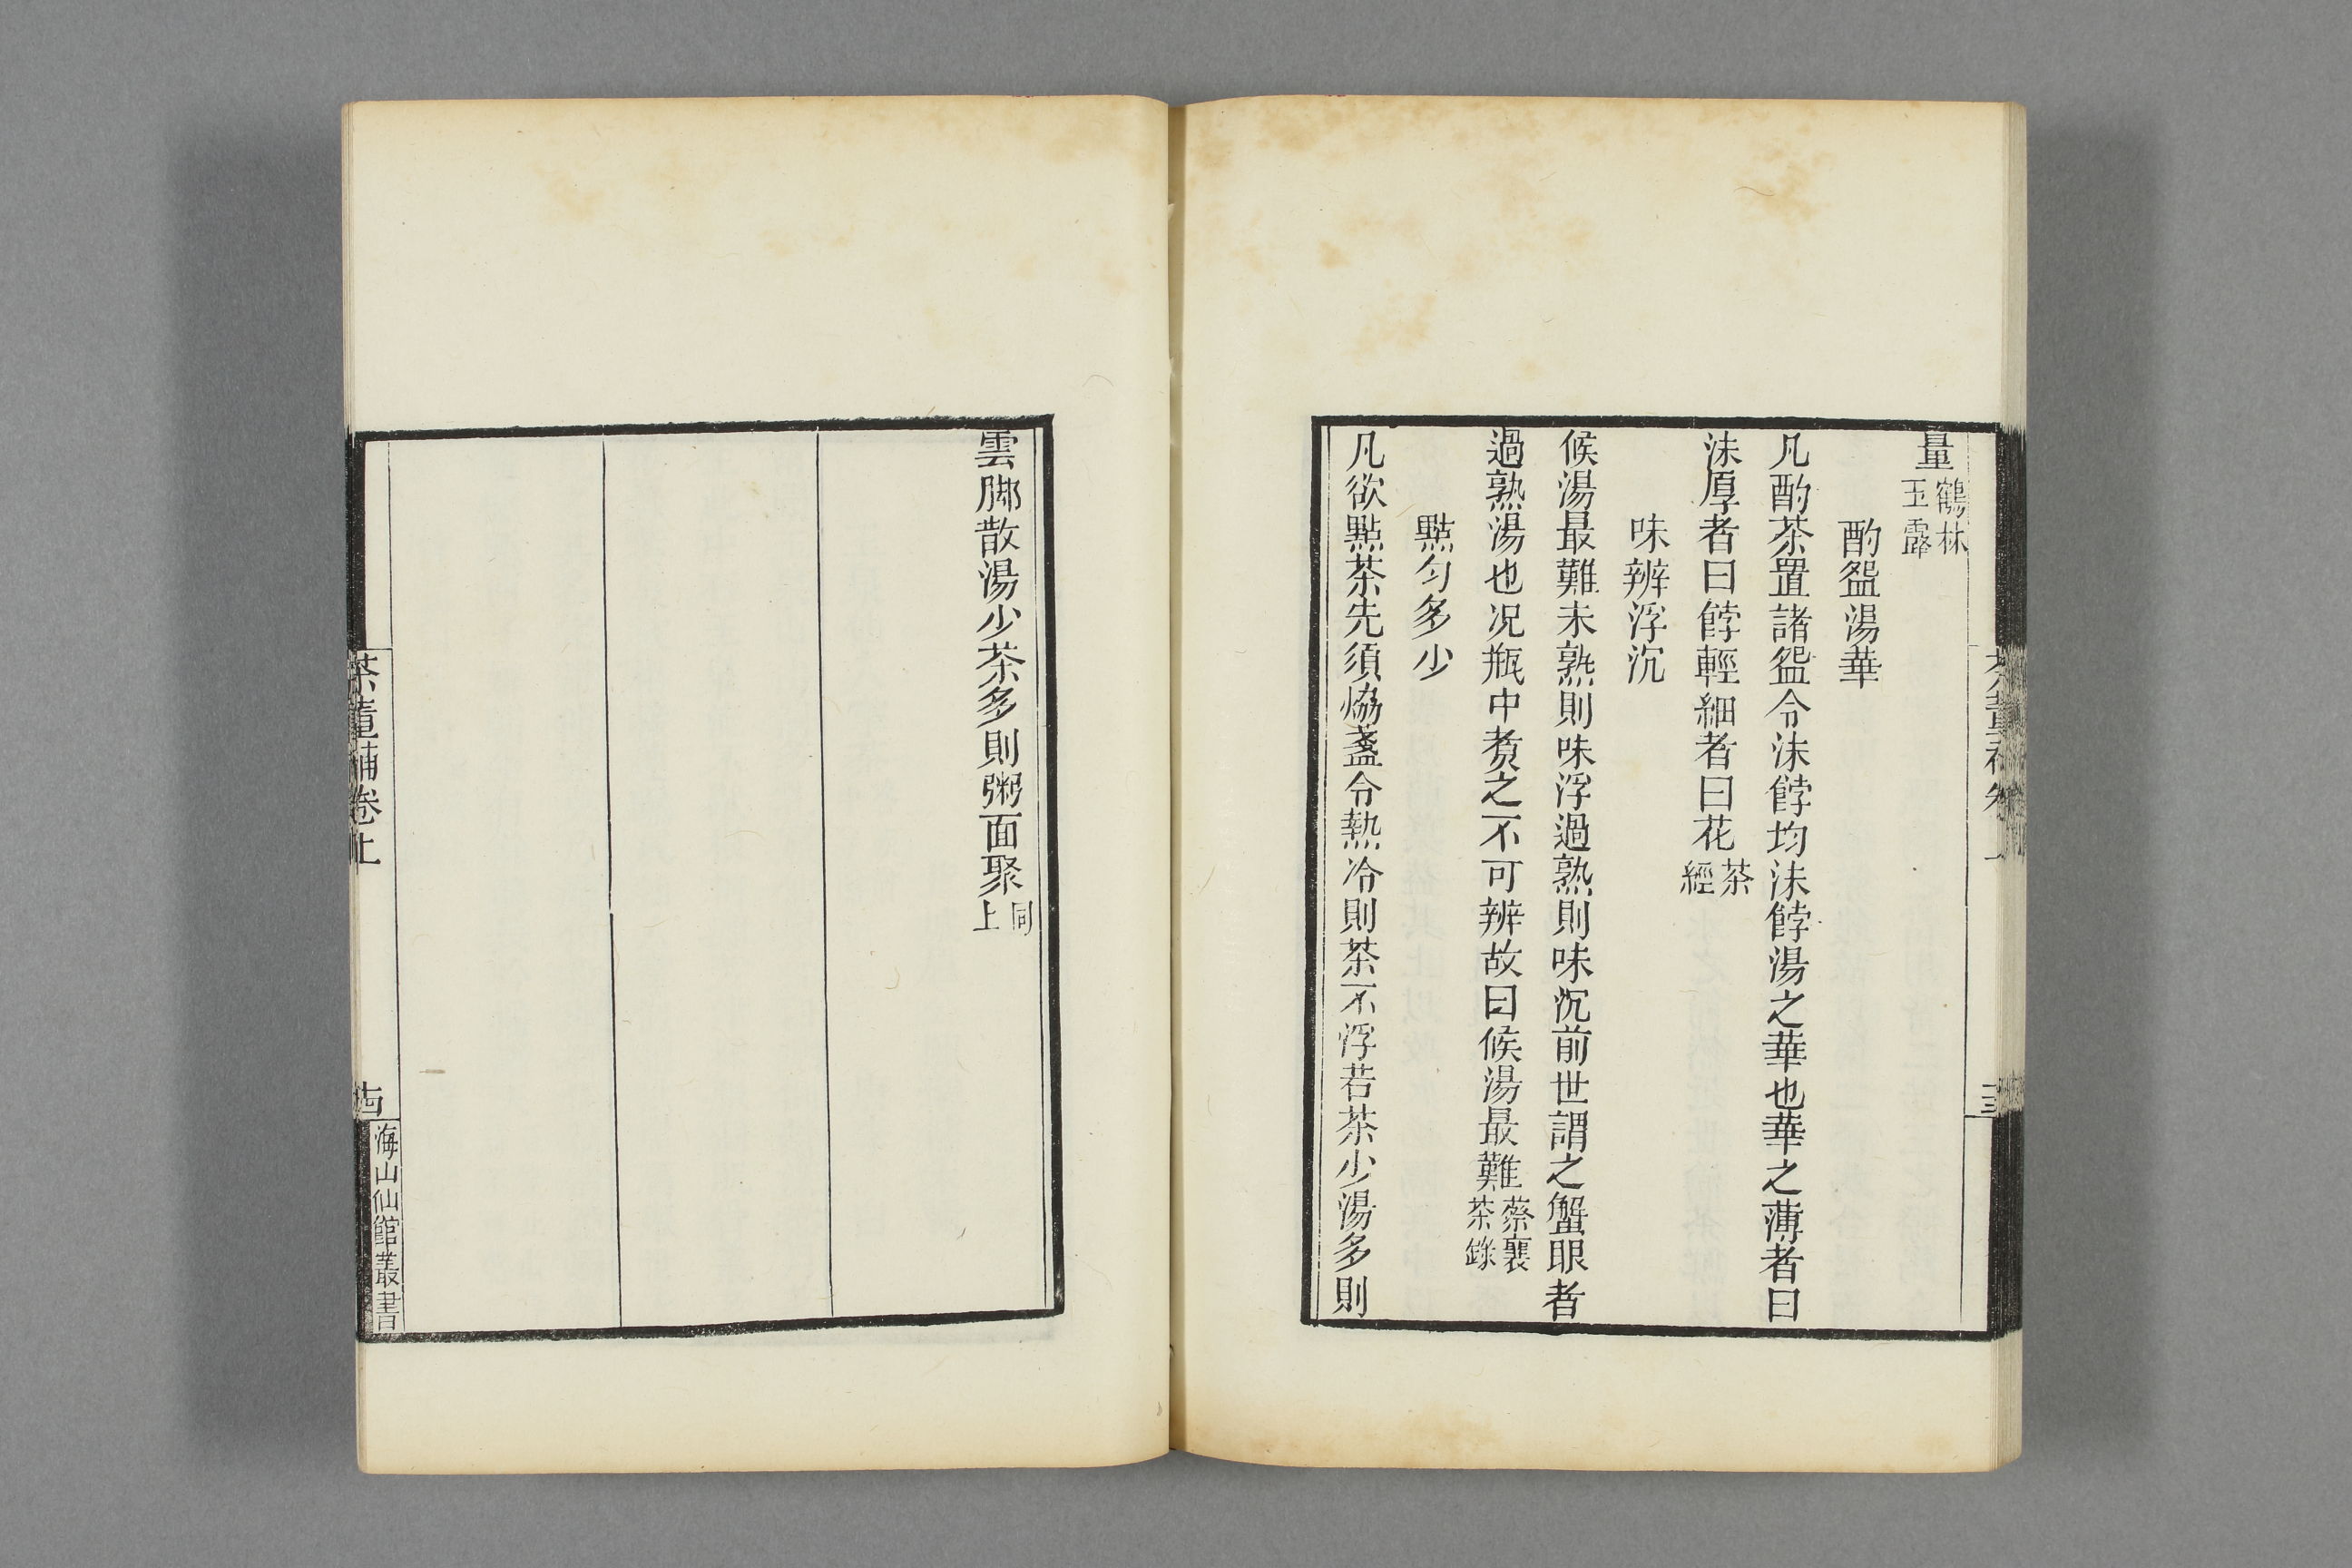 量鶴林玉露
酌盌湯華
凡酌茶置諸盌令沫餑均沫餑湯之華也華之薄者曰
沫厚者曰餑輕細者曰花茶經
味辨浮沉
候湯最難未熟則味浮過熟則味沉前世謂之蟹眼者
過熟湯也況瓶中煑之不可辨故曰候湯最難蔡襄茶錄
點勻多少
凡欲點茶先須熁盞令熱冷則茶不浮若茶少湯多則
雲脚散湯少茶多則粥面聚同上
茶董補卷上
十四
海山仙館叢書